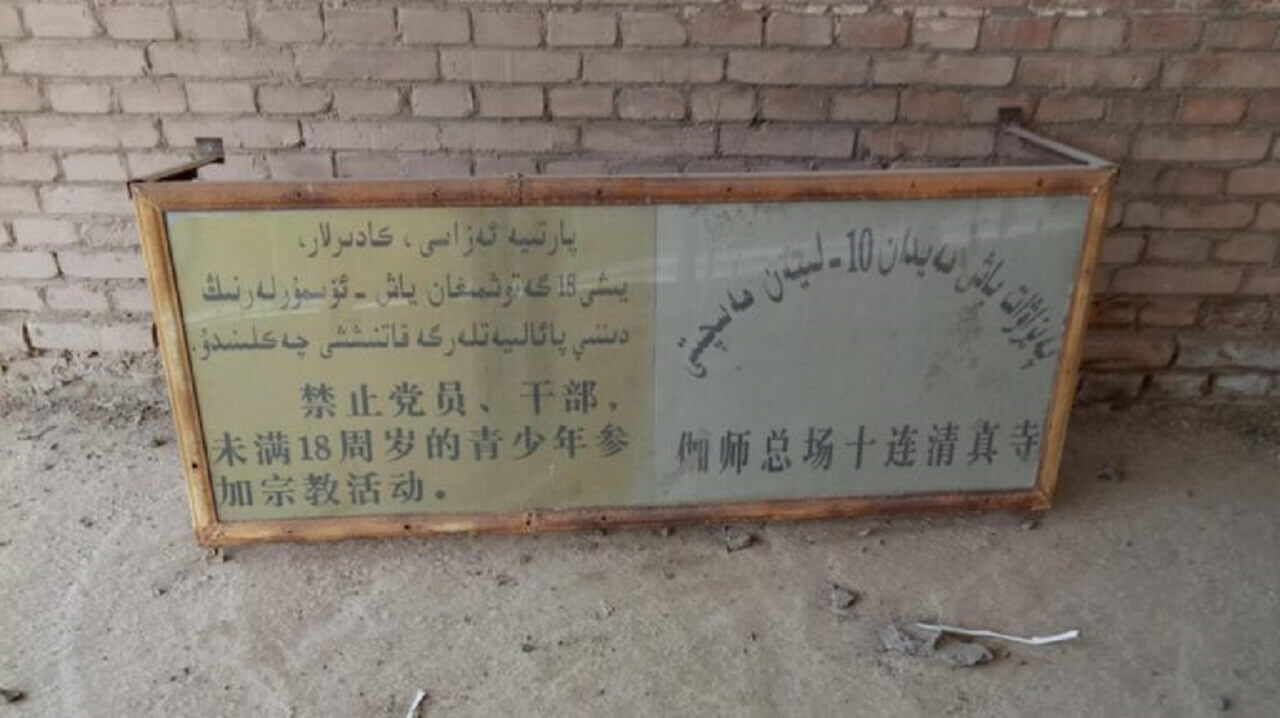 پارتىيە ئەزاسى، كادىرلار،
يېشى 18 گە توشمىغان ياش - ئۆسمۈرلەرنىڭ
دىننىي پائالىيەتلەرگە قاتنىشىشى چەكلىنىدۇ.
禁止党员、干部，
未满18周岁的青少年参
加宗教活动。
پەيزاۋات باش مەيدان 10 - لىيەن مەسچىتى
伽师总场十连清真寺